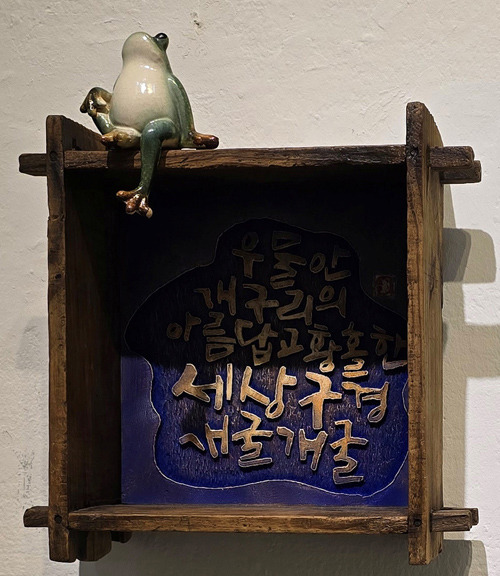 우물안
개구리의
아름답고황홀한
세상구경
개굴개굴